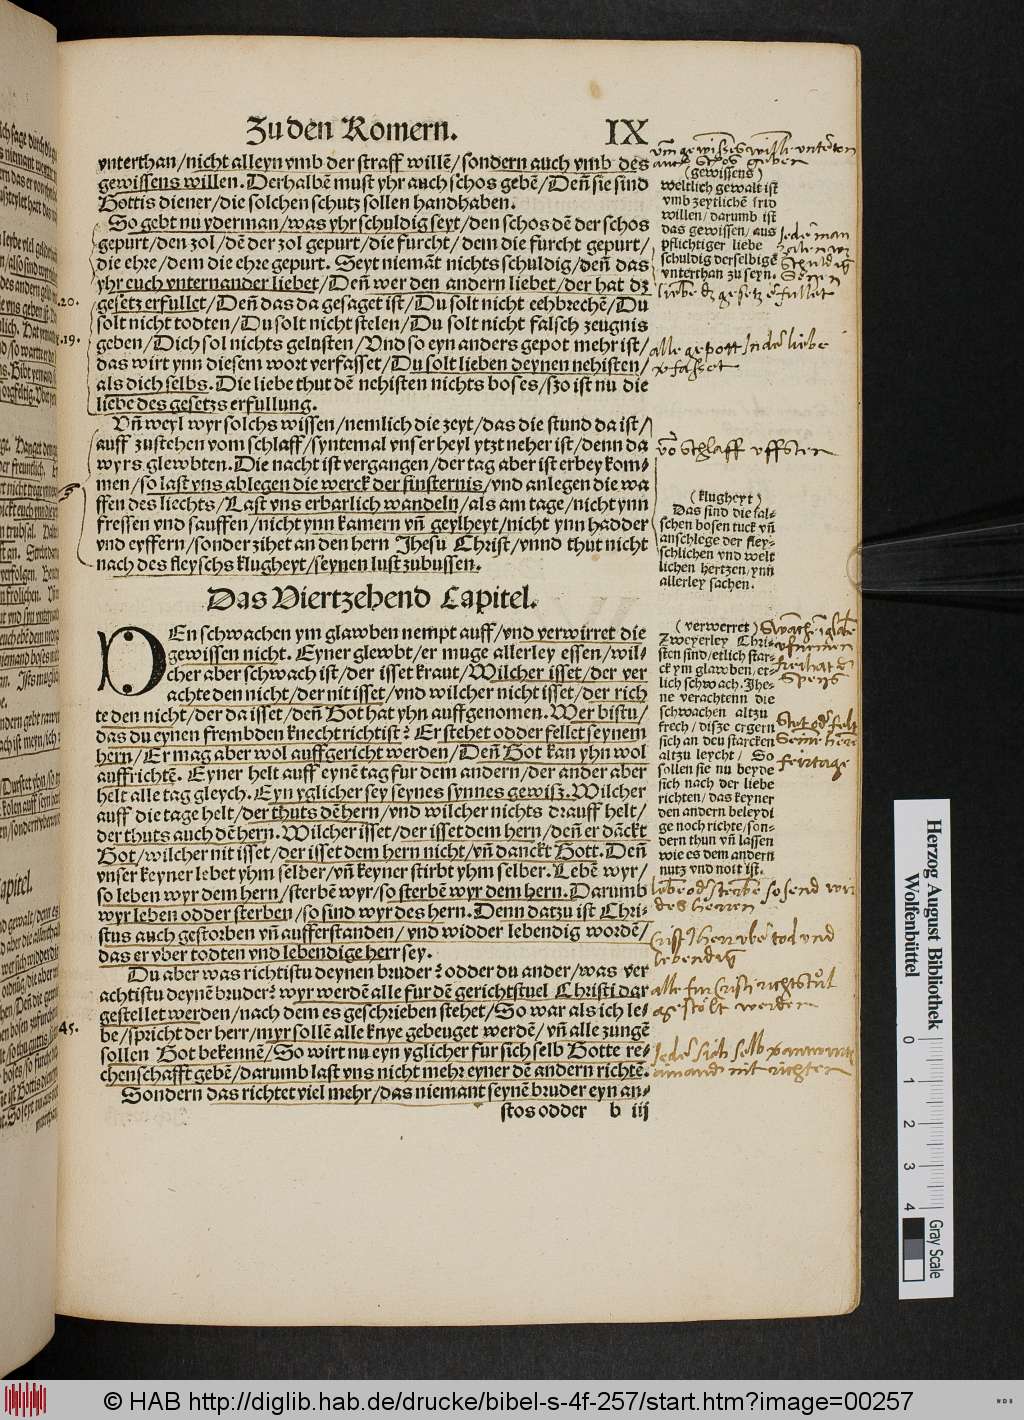 Zu den Romern. IX
vnterthan/nicht alleyn vmb der straff willẽ/sondern auch vmb des
gewissens willen. Derhalbẽ must yhr auch schos gebẽ/Deñ sie sind
Gottis diener/die solchen schutz sollen handhaben.
So gebt nu yderman/was yhr schuldig seyt/den schos dẽ der schos
gepurt/den zol/dẽ der zol gepurt/die furcht/dem die furcht gepurt/
die ehre/dem die ehre gepurt. Seyt niemãt nichts schuldig/deñ das
yhr euch vnternander liebet/Deñ wer den andern liebet/der hat dz
gesetz erfullet/Deñ das da gesaget ist/Du solt nicht eehbrechẽ/Du
solt nicht todten/Du solt nicht stelen/Du solt nicht falsch zeugnis
geben/Dich sol nichts gelusten/Vnd so eyn anders gepot mehr ist/
das wirt ynn diesem wort verfasset/Du solt lieben deynen nehisten/
als dich selbs. Die liebe thut dẽ nehisten nichts boses/szo ist nu die
liebe des gesetzs erfullung.
Vñ weyl wyr solchs wissen/nemlich die zeyt/das die stund da ist/
auff zustehen vom schlaff/syntemal vnser heyl ytzt neher ist/denn da
wyrs glewbten. Die nacht ist vergangen/der tag aber ist erbey kom-
men/so last vns ablegen die werck der finsternis/vnd anlegen die wa
ffen des liechts/Last vns erbarlich wandeln/als am tage/nicht ynn
fressen vnd sauffen/nicht ynn kamern vñ geylheyt/nicht ynn hadder
vnd eyffern/sonder zihet an den hern Jhesu Christ/vnnd thut nicht
nach des fleyschs klugheyt/seynen lust zubussen.
Das Viertzehend Capitel.
DEn schwachen ym glawben nempt auff/vnd verwirret die
gewissen nicht. Eyner glewbt/er muge allerley essen/wil-
cher aber schwach ist/der isset kraut/Wilcher isset/der ver
achte den nicht/der nit isset/vnd wilcher nicht isset/der rich
te den nicht/der da isset/deñ Got hat yhn auffgenomen. Wer bistu/
das du eynen frembden knecht richtist? Er stehet odder fellet seynem
hern/Er mag aber wol auffgericht werden/Deñ Got kan yhn wol
auffrichtẽ. Eyner helt auff eynẽ tag fur dem andern/der ander aber
helt alle tag gleych. Eyn yglicher sey seynes synnes gewisz. Wilcher
auff die tage helt/der thuts dẽ hern/vnd wilcher nichts drauff helt/
der thuts auch dẽ hern. Wilcher isset/der isset dem hern/deñ er dãckt
Got/wilcher nit isset/der isset dem hern nicht/vñ danckt Gott. Deñ
vnser keyner lebet yhm selber/vñ keyner stirbt yhm selber. Lebẽ wyr/
so leben wyr dem hern/sterbẽ wyr/so sterbẽ wyr dem hern. Darumb
wyr leben odder sterben/so sind wyr des hern. Denn datzu ist Chri-
stus auch gestorben vñ aufferstanden/vnd widder lebendig wordẽ/
das er vber todten vnd lebendige herr sey.
Du aber was richtistu deynen bruder? odder du ander/was ver
achtistu deynẽ bruder? wyr werdẽ alle fur dẽ gerichtstuel Christi dar
gestellet werden/nach dem es geschrieben stehet/So war als ich le-
be/spricht der herr/myr sollẽ alle knye gebeuget werdẽ/vñ alle zungẽ
sollen Got bekennẽ/So wirt nu eyn yglicher fur sich selb Gotte re-
chenschafft gebẽ/darumb last vns nicht mehr eyner dẽ andern richtẽ.
Sondern das richtet viel mehr/das niemant seynẽ bruder eyn an-
stos odder b iij
(gewissens)
weltlich gewalt ist
vmb zeytlichẽ frid
willen/darumb ist
das gewissen/aus
pflichtiger liebe
schuldig derselbigẽ
vnterthan zu seyn.
alle gepott In der liebe
võ schlaff vffsten
(klugheyt)
Das sind die fal-
schen bosen tuck vñ
anschlege der fley-
schlichen vnd welt
lichen hertzen/ynn
allerley sachen.
(verwerret)
Zweyerley Chri-
sten sind/etlich star-
ck ym glawben/et-
lich schwach. Jhe-
ne verachtenn die
schwachen altzu
frech/disze ergern
sich an den starcken
altzu leycht/ So
sollen sie nu beyde
sich nach der liebe
richten/das keyner
den andern beleydi
ge noch richte/son-
dern thun vñ lassen
wie es dem andern
nutz vnd nott ist.
feirtage
des herren
20.
19.
45.
Herzog August Bibliothek
Wolfenbüttel
0 1 2 3 4
Gray Scale
© HAB http://diglib.hab.de/drucke/bibel-s-4f-257/start.htm?image=00257